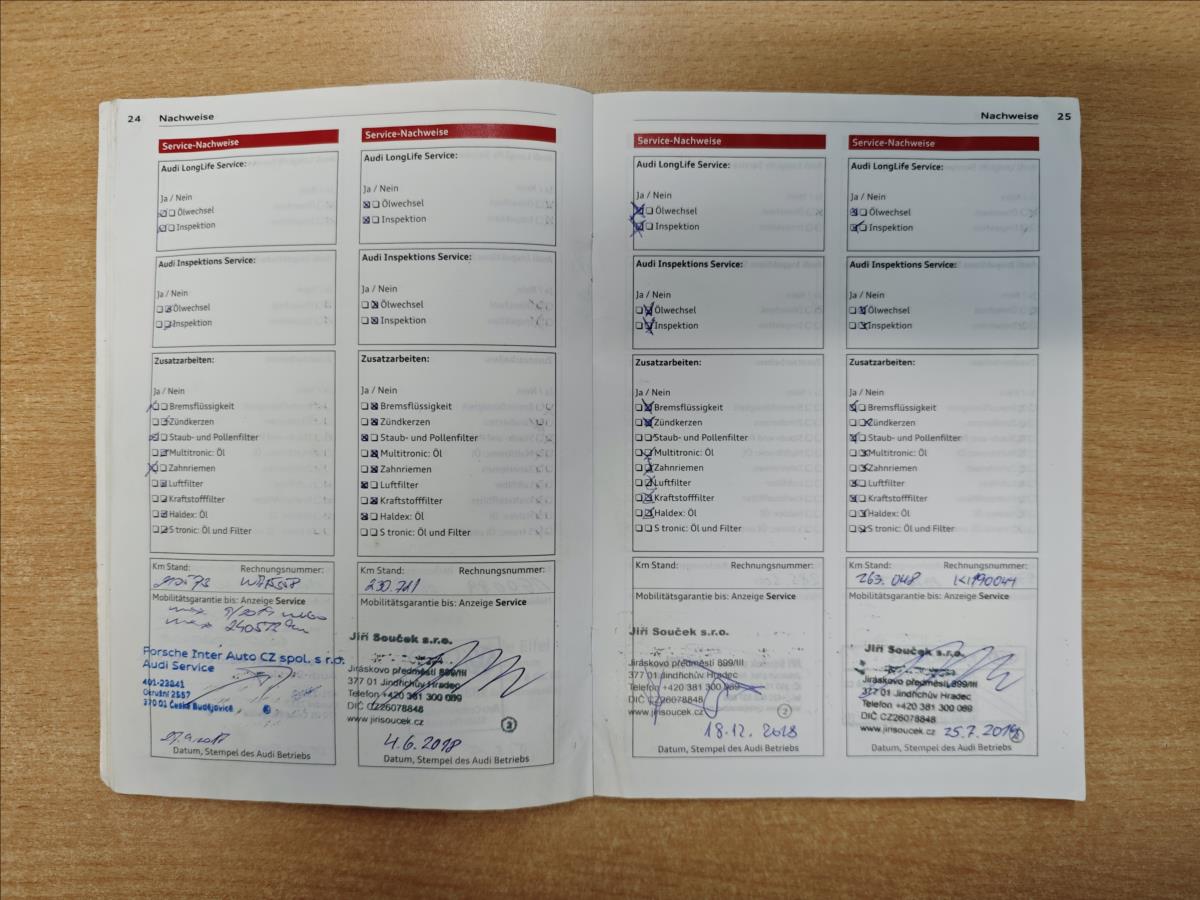 24 Nachweise
Service-Nachweise
Audi LongLife Service:
Ja / Nein
Ölwechsel
Inspektion
Audi Inspektions Service:
Ja / Nein
Ölwechsel
Inspektion
Zusatzarbeiten:
Ja / Nein
Bremsflüssigkeit
Zündkerzen
Staub- und Pollenfilter
Multitronic: Öl
Zahnriemen
Luftfilter
Kraftstofffilter
Haldex: Öl
S tronic: Öl und Filter
Km Stand: Rechnungsnummer:
Mobilitätsgarantie bis: Anzeige Service
max 9/2019 nebo
max
Porsche Inter Auto CZ spol. s r.o.
Audi Service
401-23841
Okružní 2557
370 01 České Budějovice
Datum, Stempel des Audi Betriebs
Service-Nachweise
Audi LongLife Service:
Ja / Nein
Ölwechsel
Inspektion
Audi Inspektions Service:
Ja / Nein
Ölwechsel
Inspektion
Zusatzarbeiten:
Ja / Nein
Bremsflüssigkeit
Zündkerzen
Staub- und Pollenfilter
Multitronic: Öl
Zahnriemen
Luftfilter
Kraftstofffilter
Haldex: Öl
S tronic: Öl und Filter
Km Stand: Rechnungsnummer:
230.711
Mobilitätsgarantie bis: Anzeige Service
Jiří Souček s.r.o.
Jiráskovo předměstí 899/III
377 01 Jindřichův Hradec
Telefon +420 381 300 089
DIČ CZ26078848
www.jirisoucek.cz
2
4.6.2018
Datum, Stempel des Audi Betriebs
Nachweise 25
Service-Nachweise
Audi LongLife Service:
Ja / Nein
Ölwechsel
Inspektion
Audi Inspektions Service:
Ja / Nein
Ölwechsel
Inspektion
Zusatzarbeiten:
Ja / Nein
Bremsflüssigkeit
Zündkerzen
Staub- und Pollenfilter
Multitronic: Öl
Zahnriemen
Luftfilter
Kraftstofffilter
Haldex: Öl
S tronic: Öl und Filter
Km Stand: Rechnungsnummer:
Mobilitätsgarantie bis: Anzeige Service
Jiří Souček s.r.o.
Jiráskovo předměstí 899/III
377 01 Jindřichův Hradec
Telefon +420 381 300 089
DIČ CZ26078848
www.jirisoucek.cz
2
18.12.2018
Datum, Stempel des Audi Betriebs
Service-Nachweise
Audi LongLife Service:
Ja / Nein
Ölwechsel
Inspektion
Audi Inspektions Service:
Ja / Nein
Ölwechsel
Inspektion
Zusatzarbeiten:
Ja / Nein
Bremsflüssigkeit
Zündkerzen
Staub- und Pollenfilter
Multitronic: Öl
Zahnriemen
Luftfilter
Kraftstofffilter
Haldex: Öl
S tronic: Öl und Filter
Km Stand: Rechnungsnummer:
263.048
Mobilitätsgarantie bis: Anzeige Service
Jiří Souček s.r.o.
Jiráskovo předměstí 899/III
377 01 Jindřichův Hradec
Telefon +420 381 300 089
DIČ CZ26078848
www.jirisoucek.cz 25.7.2019
Datum, Stempel des Audi Betriebs